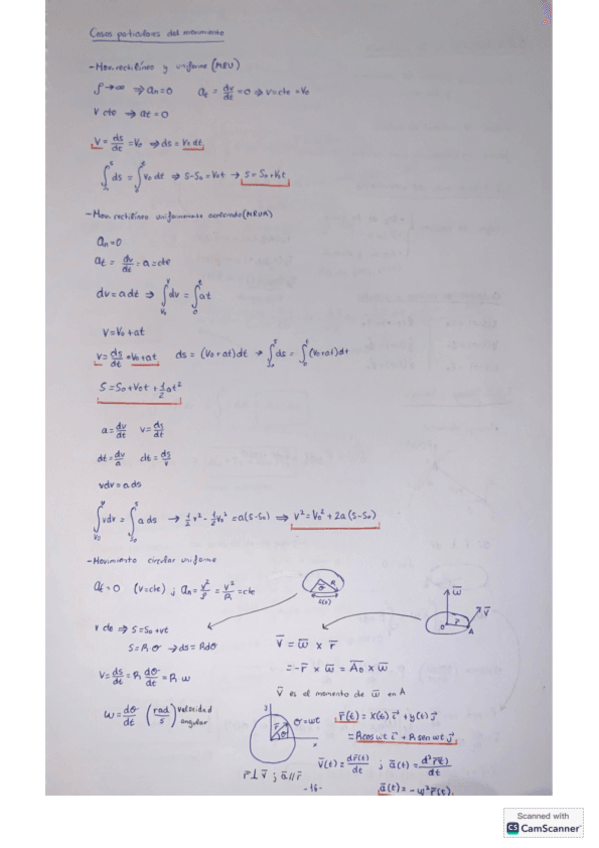 Casos particulares del movimiento
- Mov. rectilíneo y uniforme (MRU)
ρ→∞ ⇒ an=0   at = dv/dt = 0 ⇒ v=cte=V0
V cte → at=0
V = ds/dt = V0 ⇒ ds = V0 dt
∫_{S0}^{S} ds = ∫_{0}^{t} V0 dt ⇒ S-S0 = V0t → S = S0+V0t
- Mov. rectilíneo uniformemente acelerado (MRUA)
an=0
at = dv/dt = a = cte
dv = a dt ⇒ ∫_{V0}^{V} dv = ∫_{0}^{t} at
V = V0 + at
V = ds/dt = V0+at   ds = (V0+at)dt → ∫_{S0}^{S} ds = ∫_{0}^{t} (V0+at)dt
S = S0+V0t + 1/2 at²
a = dv/dt   v = ds/dt
dt = dv/a   dt = ds/v
vdv = a ds
∫_{V0}^{V} vdv = ∫_{S0}^{S} a ds → 1/2 v² - 1/2 V0² = a(S-S0) ⇒ V² = V0² + 2a(S-S0)
- Movimiento circular uniforme
at = 0 (v=cte) ; an = v²/ρ = v²/R = cte
θ R
S(t)
w̄ V̄
O r̄ A
v cte ⇒ S=S0+vt
S=R·θ → ds=Rdθ
V = ds/dt = R dθ/dt = R w
w = dθ/dt (rad/s) velocidad angular
V̄ = w̄ x r̄
= -r̄ x w̄ = A̅O̅ x w̄
V̄ es el momento de w̄ en A
y r̄ θ x
θ=wt
r̄ ⊥ v̄ ; ā // r̄
r̄(t) = x(t) i⃗ + y(t) j⃗
= R cos wt i⃗ + R sen wt j⃗
v̄(t) = dr̄(t)/dt ; ā(t) = d² r̄(t)/dt
ā(t) = -w² r̄(t).
-16-
Scanned with
CS CamScanner